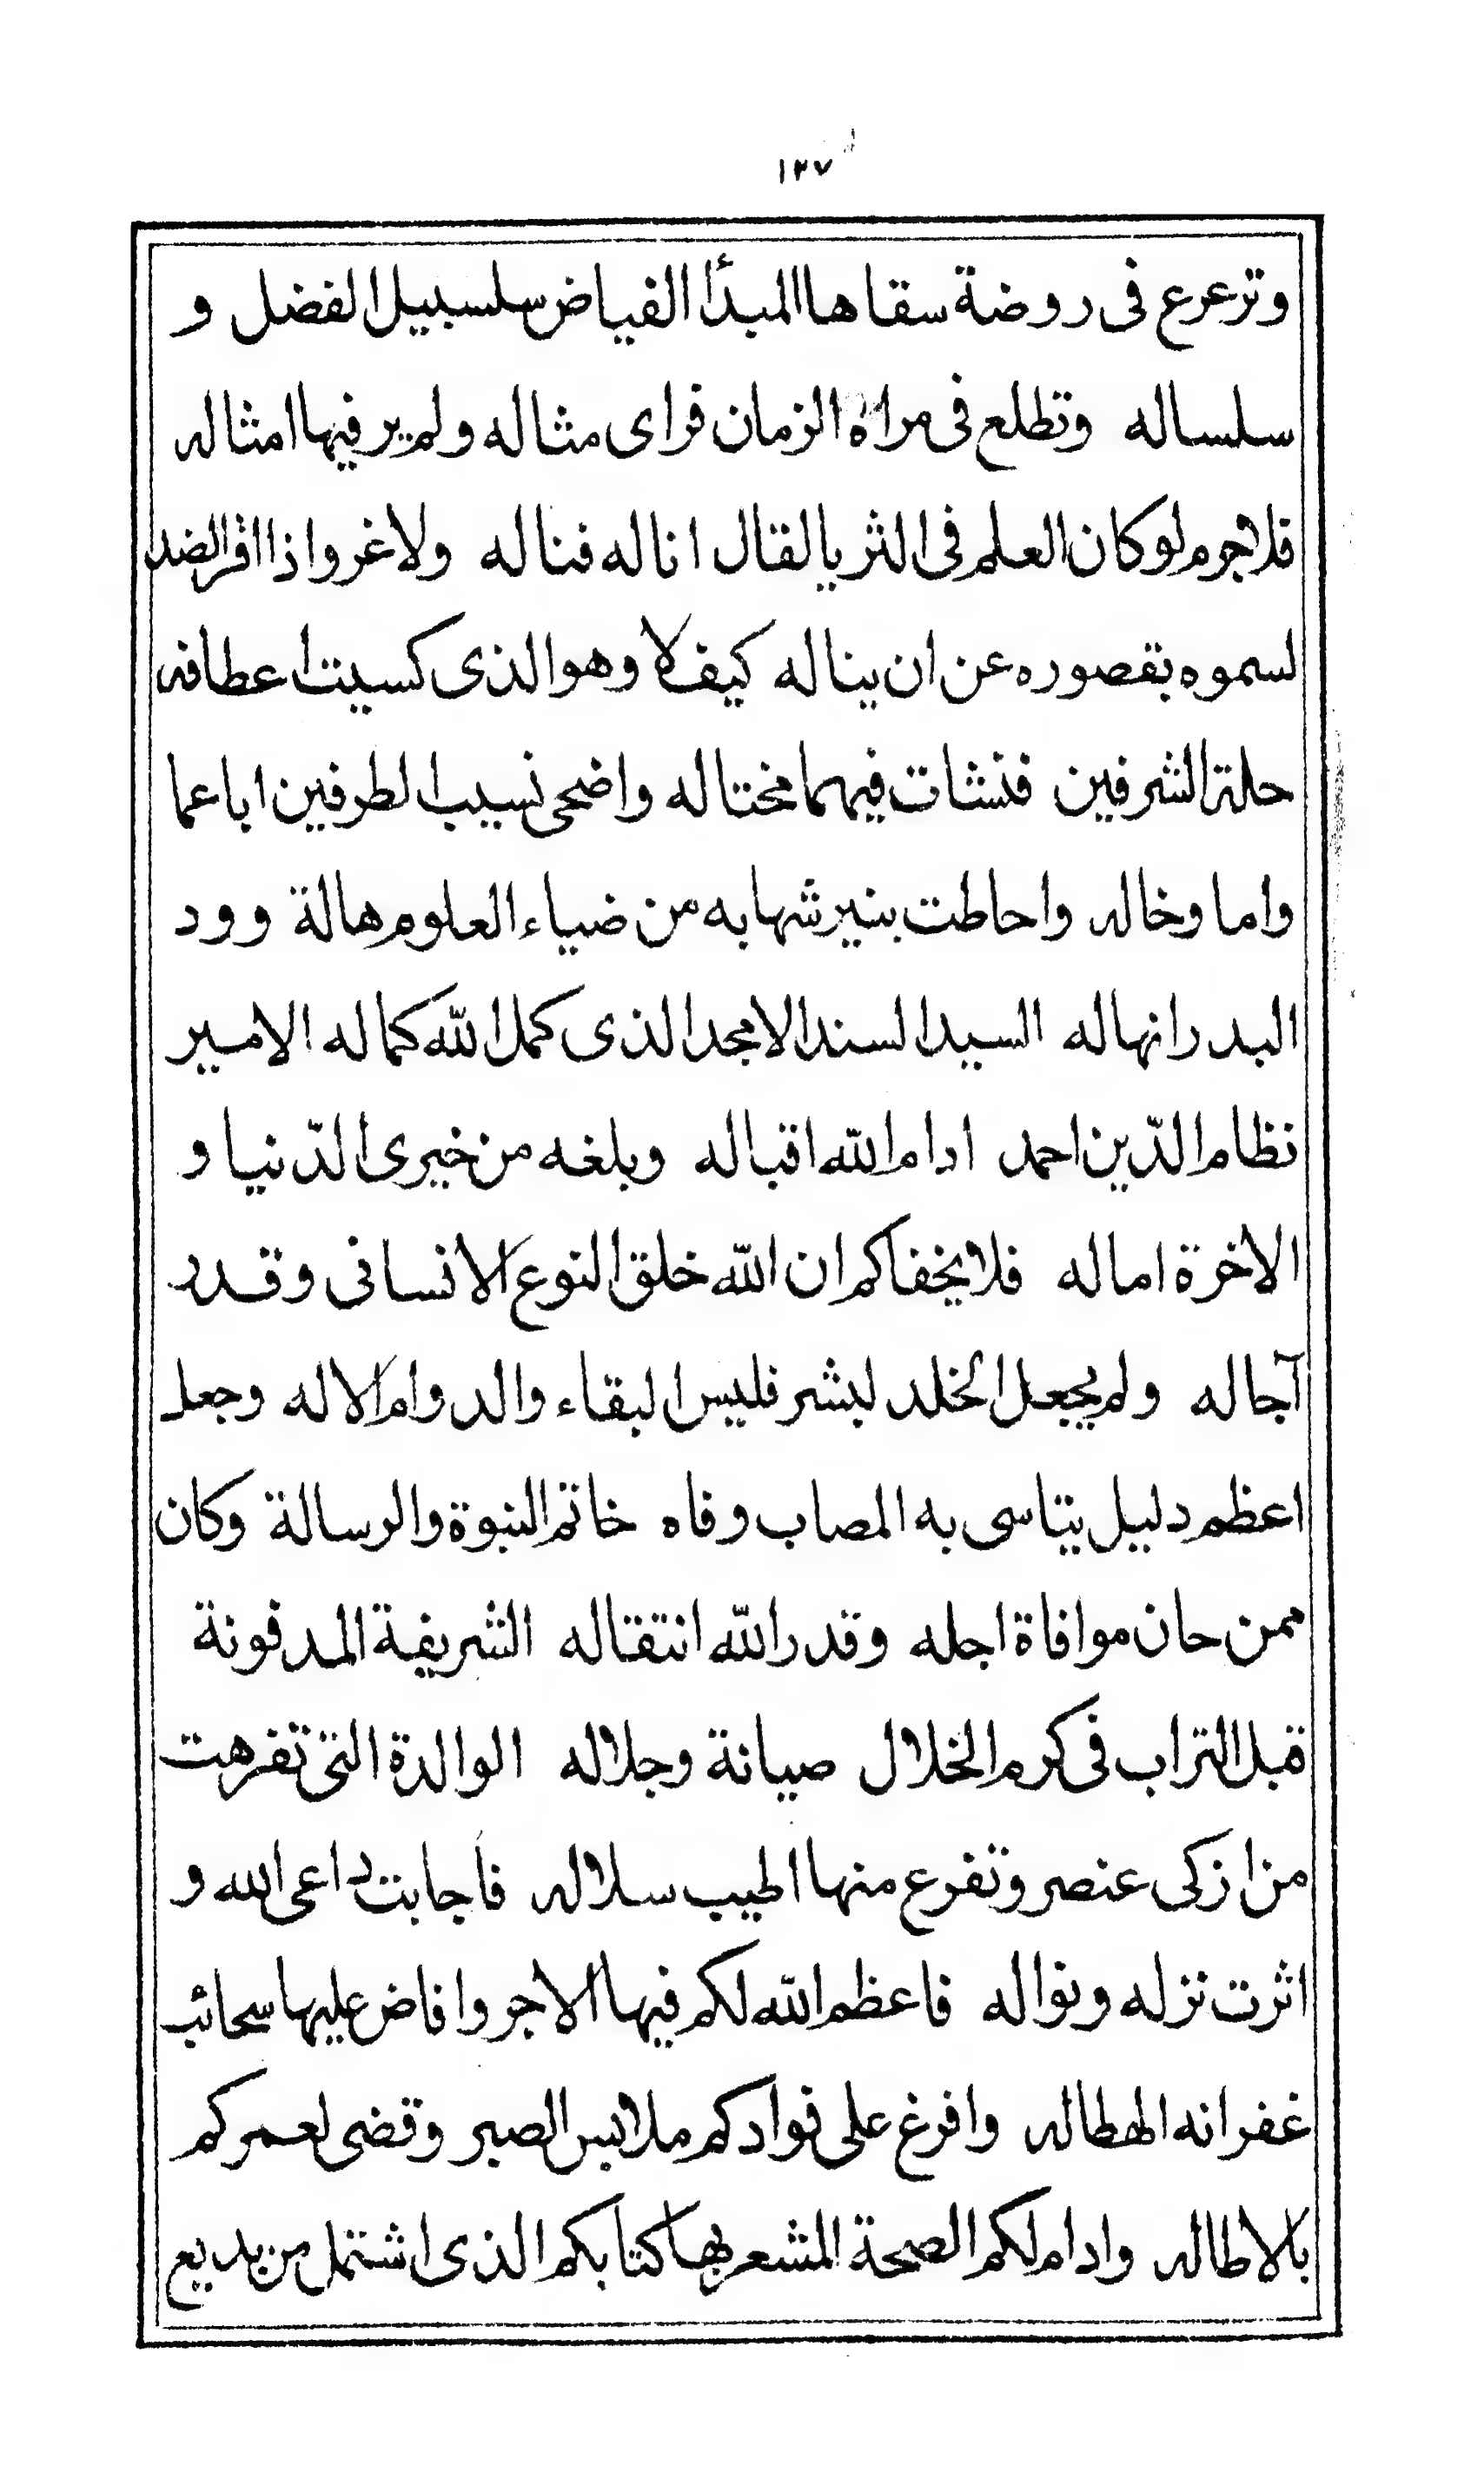 ١٣٧
وترعرع فى روضة سقاها المبدأ الفياض سلسبيل الفضل و
سلساله وتطلع فى مراة الزمان فراى مثاله ولم ير فيها امثاله
فلا جرم لو كان العلم فى الثريا لقال اناله فناله ولا غرو اذا اقر الضد
لسموه بقصوره عن ان يناله كيف لا وهو الذى كسيت اعطافه
حلة الشرفين فنشات فيهما مختاله واضحى نسيب الطرفين ابا عما
واما وخاله واحاطت بنير شهابه من ضياء العلوم هالة وود
البدر انها له السيد السند الامجد الذى كمل الله كماله الامير
نظام الدّين احمد ادام الله اقباله وبلغه من خيرى الدّنيا و
الاخرة اماله فلا يخفاكم ان الله خلق النوع الانسانى وقدر
آجاله ولم يجعل الخلد لبشر فليس البقاء والدوام الا له وجعل
اعظم دليل يتاسى به المصاب وفاه خاتم النبوة والرسالة وكان
ممن حان موافاة اجله وقدر الله انتقاله الشريفة المدفونة
قبل التراب فى كرم الخلال صيانة وجلاله الوالدة التى تفرهت
من ازكى عنصر وتفرع منها اطيب سلاله فاجابت داعى الله و
اثرت نزله ونواله فاعظم الله لكم فيها الاجر وافاض عليها سحائب
غفرانه الهطاله وافرغ على فوادكم ملابس الصبر وقضى لعمركم
بالاطاله وادام لكم الصحة المشعر بها كتابكم الذى اشتمل من بديع